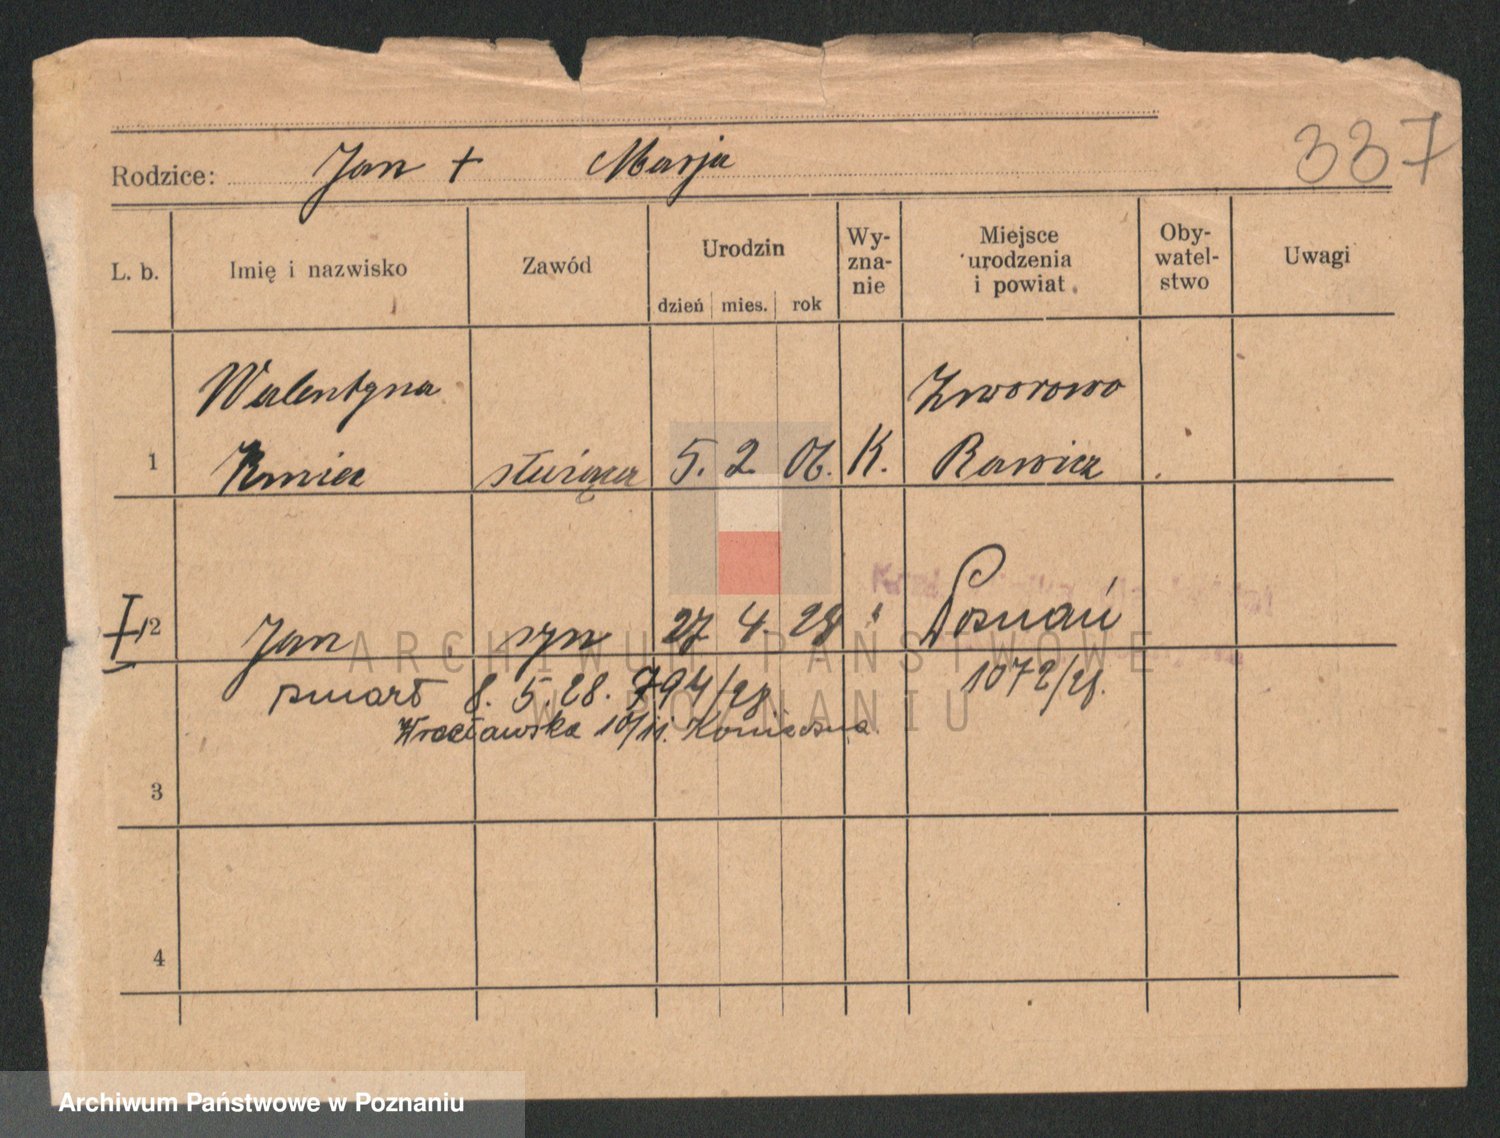 337
Rodzice: Jan + Marja
L. b. Imię i nazwisko Zawód Urodzin dzień mies. rok Wy-zna-nie Miejsce urodzenia i powiat Oby-watel-stwo Uwagi
Walentyna Zworowo
1 Kmiec służąca 5. 2. 06. K. Rawicz
I 2 Jan syn 27 4. 28 " Poznań
zmarł 8. 5. 28. 794/28 1072/28.
Wrocławska 10/11. Konieczna
3
4
ARCHIWUM PAŃSTWOWE
W POZNANIU
Archiwum Państwowe w Poznaniu